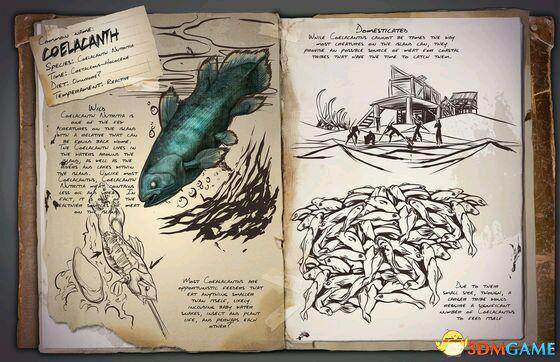 Common name:
Coelacanth
Species: Coelacanth Nutritia
Time: Cretaceous-Holocene
Diet: Omnivore?
Temperament: Reactive
Wild
Coelacanth Nutritia is
one of the few
creatures on the island
with a relative that can
be found back home.
The Coelacanth lives in
the waters around the
island, as well as the
rivers and lakes within
the island. Unlike most
Coelacanths, Coelacanth
Nutritia meat contains
less oil and In
fact, it the
healthier meat
on the
Most Coelacanths are
opportunistic feeders that
eat anything smaller
than itself, likely
including baby water
snakes, insect and plant
life, and perhaps each
other?
Domesticated
While Coelacanths cannot be tamed the way
most creatures on the island can, they
provide an possible source of meat for coastal
tribes that have the time to catch them.
Due to their
small size, though, a
larger tribe would
require a significant
number of Coelacanths
to feed itself
3DMGAME